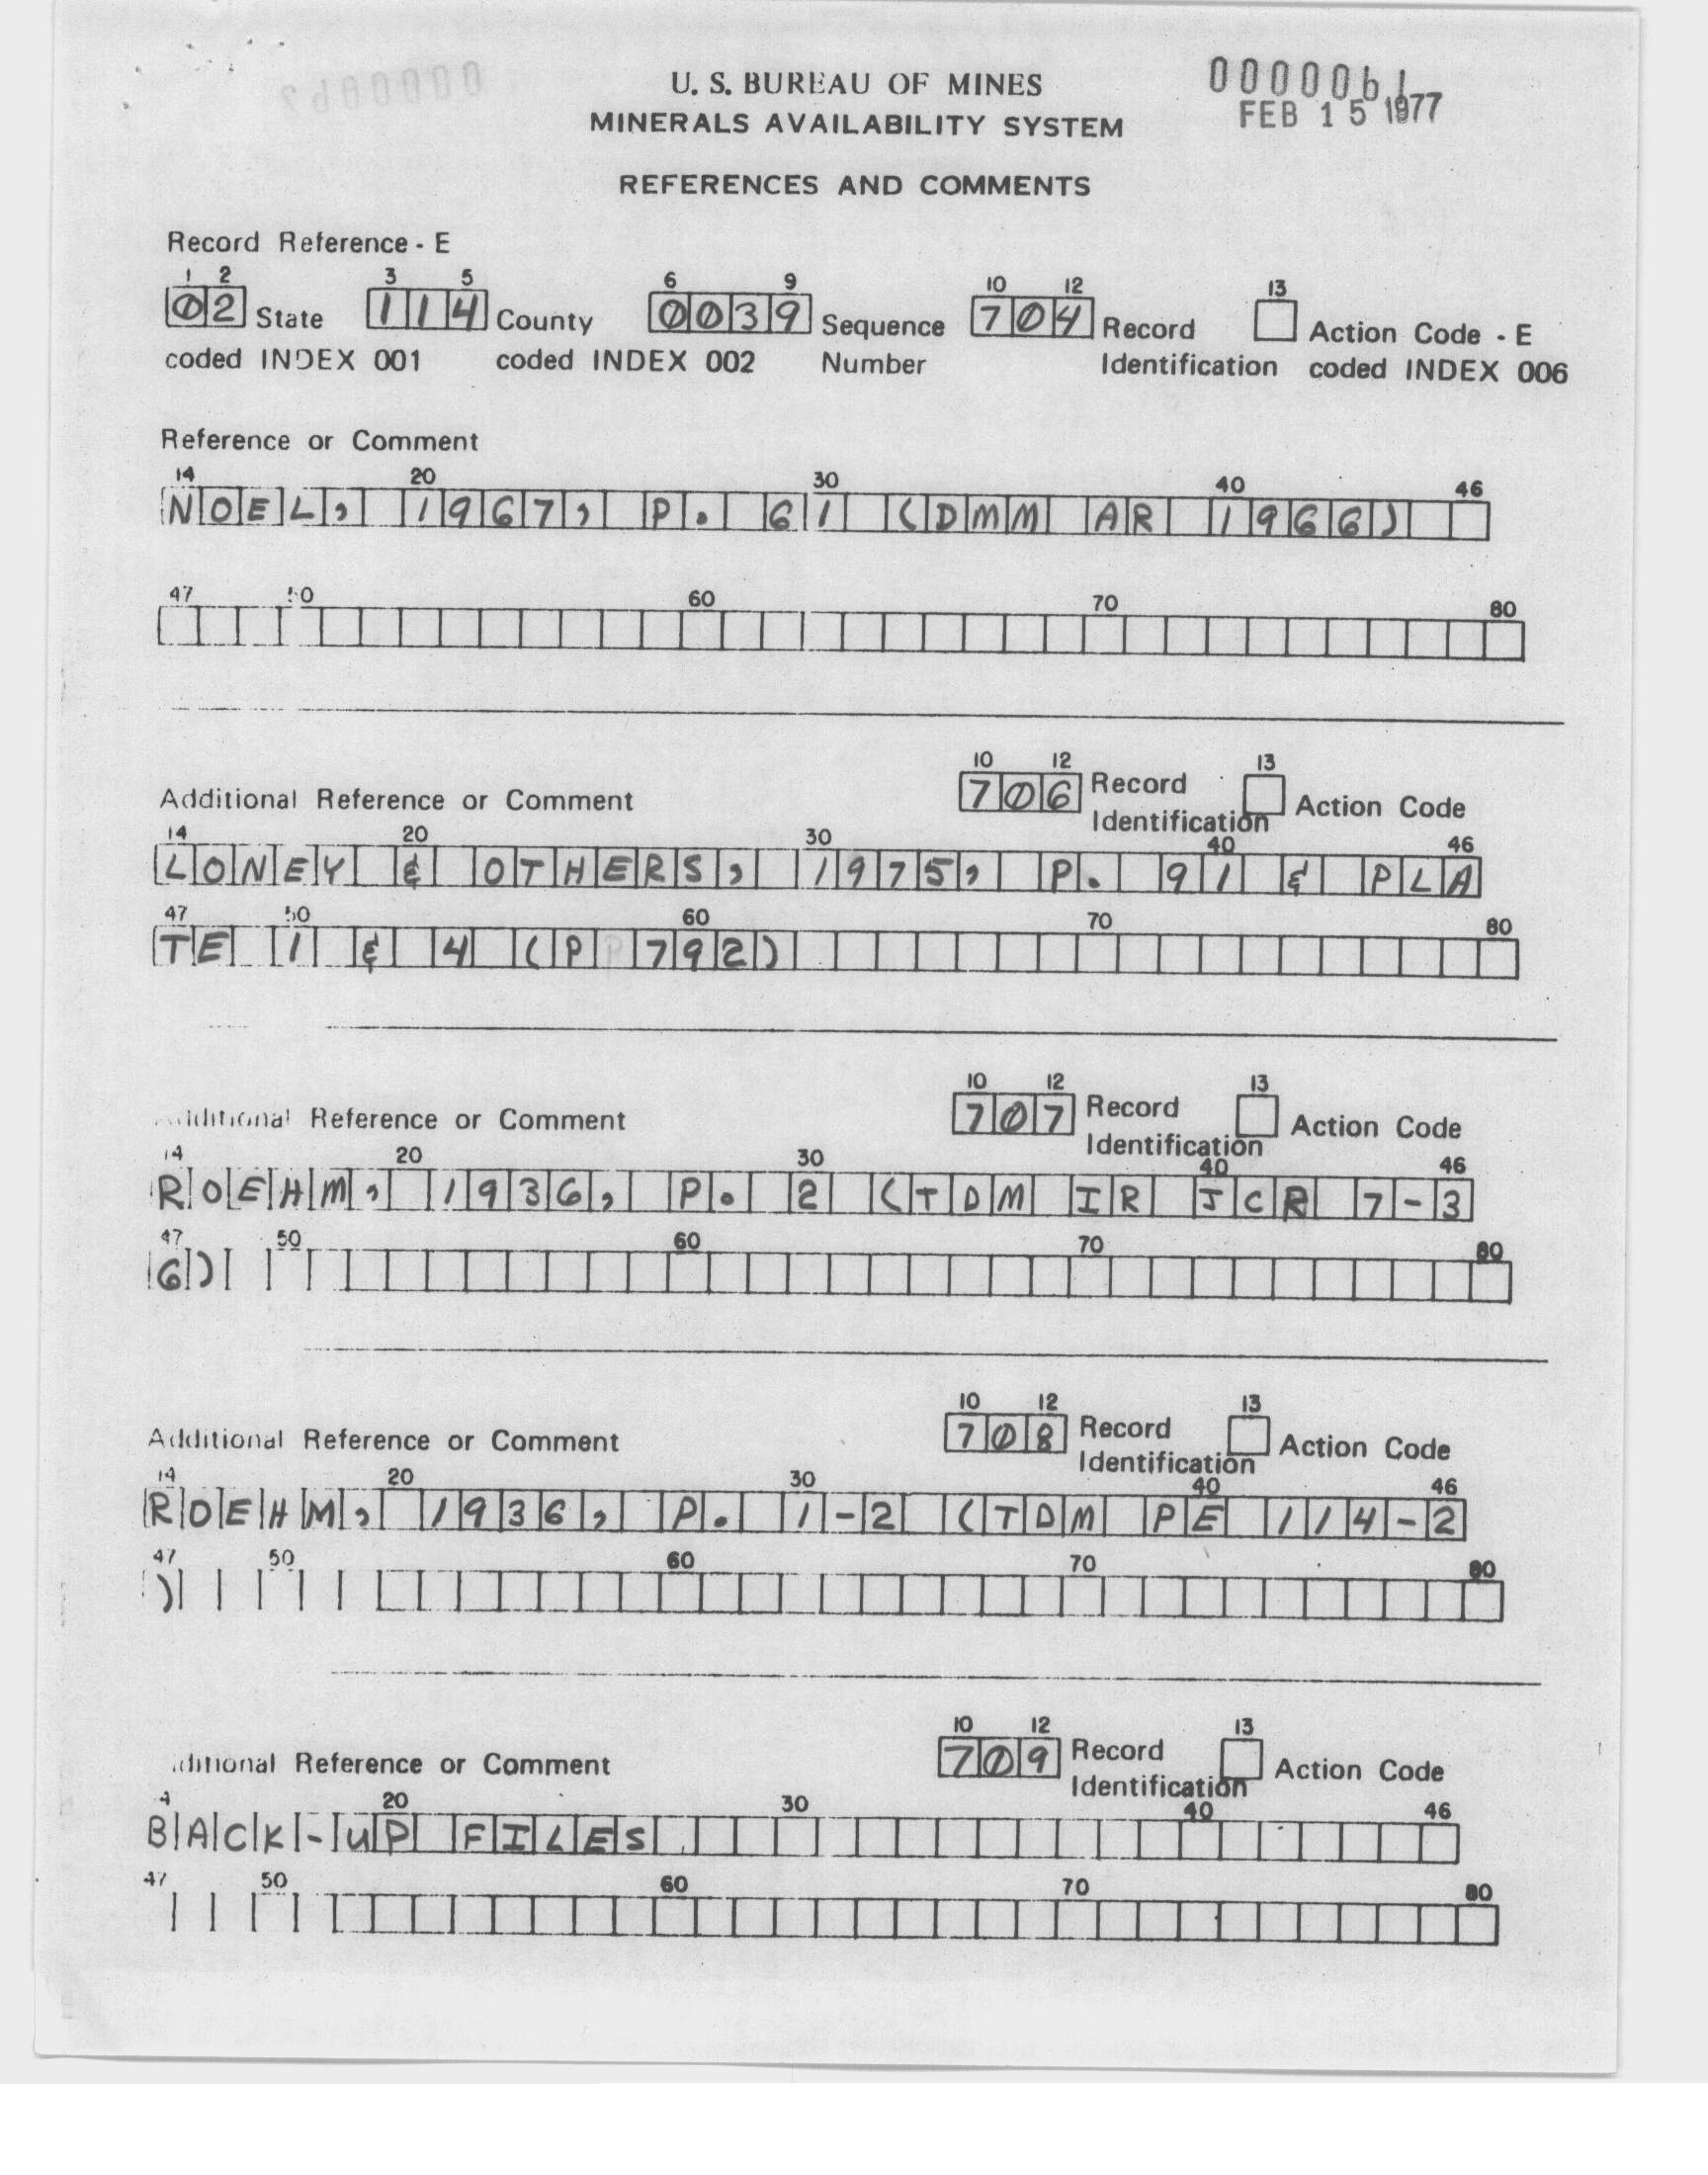 U. S. BUREAU OF MINES
0000061
MINERALS AVAILABILITY SYSTEM
FEB 15 1977
REFERENCES AND COMMENTS
Record Reference - E
1 2 3 5 6 9 10 12 13
02 State 114 County 0039 Sequence 704 Record Action Code - E
coded INDEX 001 coded INDEX 002 Number Identification coded INDEX 006
Reference or Comment
14 20 30 40 46
NOEL, 1967, P. 61 (DMM AR 1966)
47 50 60 70 80
10 12 13
Additional Reference or Comment 706 Record Action Code
Identification
14 20 30 40 46
LONEY & OTHERS, 1975, P. 91 & PLA
47 50 60 70 80
TE 1 & 4 (PP 792)
10 12 13
Additional Reference or Comment 707 Record Action Code
Identification
14 20 30 40 46
ROEHM, 1936, P. 2 (TDM IR JCR 7-3
47 50 60 70 80
6)
10 12 13
Additional Reference or Comment 708 Record Action Code
Identification
14 20 30 40 46
ROEHM, 1936, P. 1-2 (TDM PE 114-2
47 50 60 70 80
)
10 12 13
ditional Reference or Comment 709 Record Action Code
Identification
4 20 30 40 46
BACK-UP FILES
47 50 60 70 80